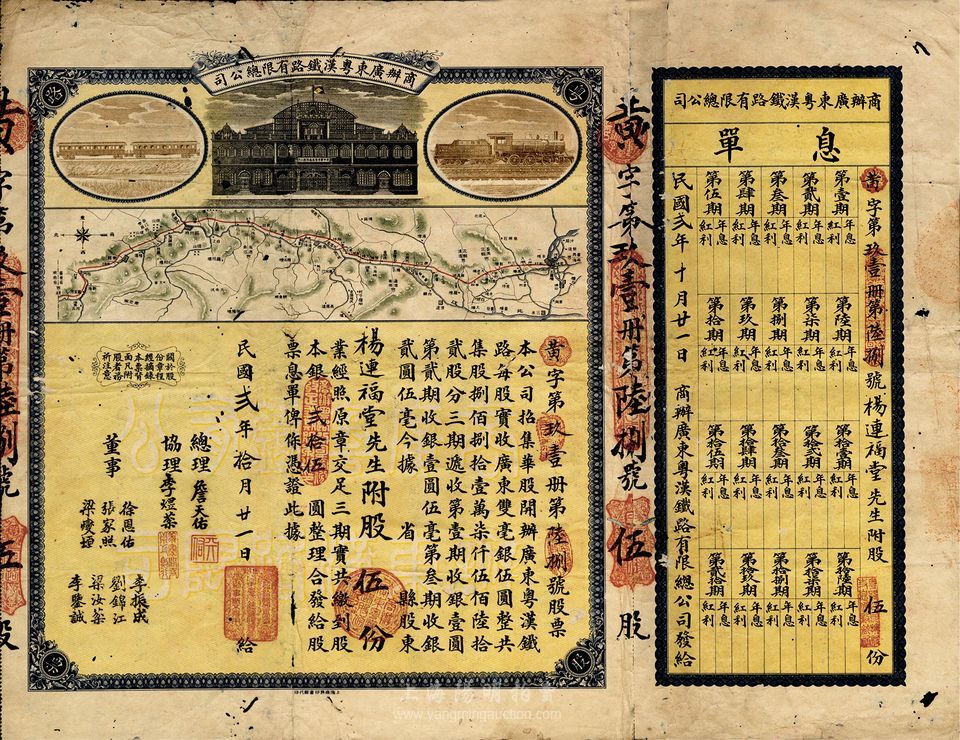 商辦廣東粵漢鐵路有限總公司
粵
路
股
票
黃字第玖壹冊第陸捌號股票
本公司招集華股開辦廣東粵漢鐵
路每股實收廣東雙毫銀伍圓整共
集股捌佰捌拾壹萬柒仟伍佰陸拾
貳股分三期遞收第壹期收銀壹圓
第貳期收銀壹圓伍毫第叁期收銀
貳圓伍毫今據 省 縣股東
楊連福堂先生附股 伍 份
業經照原章交足三期實共繳到股
本銀 貳拾伍 圓整理合發給股
票息單俾條憑證此據
民國貳年拾月廿一日 給
總理 詹天佑
協理 李煜棻
董事
徐恩佑
張家照
梁燮垣
李振成
劉錦江
梁汝棻
李鑒誠
關於股
份章程
經摘錄
本票背
面凡附
股者務
祈注意
黃字第玖壹冊第陸捌號 伍 股
黃字第玖壹冊第陸捌號 伍 股
商辦廣東粵漢鐵路有限總公司
息單
黃字第玖壹冊第陸捌號楊連福堂先生附股 伍 份
第壹期 年息 紅利
第貳期 年息 紅利
第叁期 年息 紅利
第肆期 年息 紅利
第伍期 年息 紅利
第陸期 年息 紅利
第柒期 年息 紅利
第捌期 年息 紅利
第玖期 年息 紅利
第拾期 年息 紅利
第拾壹期 年息 紅利
第拾貳期 年息 紅利
第拾叁期 年息 紅利
第拾肆期 年息 紅利
第拾伍期 年息 紅利
第拾陸期 年息 紅利
第拾柒期 年息 紅利
第拾捌期 年息 紅利
第拾玖期 年息 紅利
第貳拾期 年息 紅利
民國貳年十月廿一日 商辦廣東粵漢鐵路有限總公司發給
上海陽明拍賣
www.yangmingauction.com